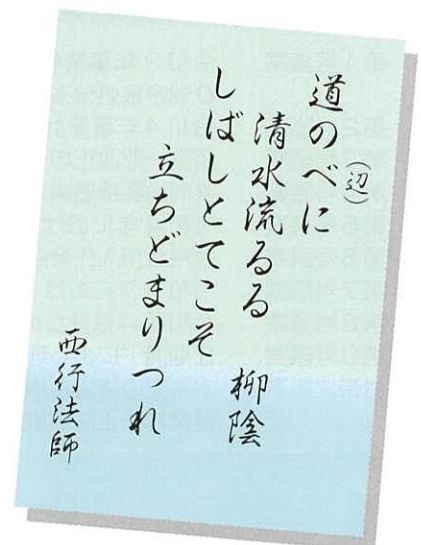 道のべ(辺)に
清水流るる　柳陰
しばしとてこそ
立ちどまりつれ
西行法師